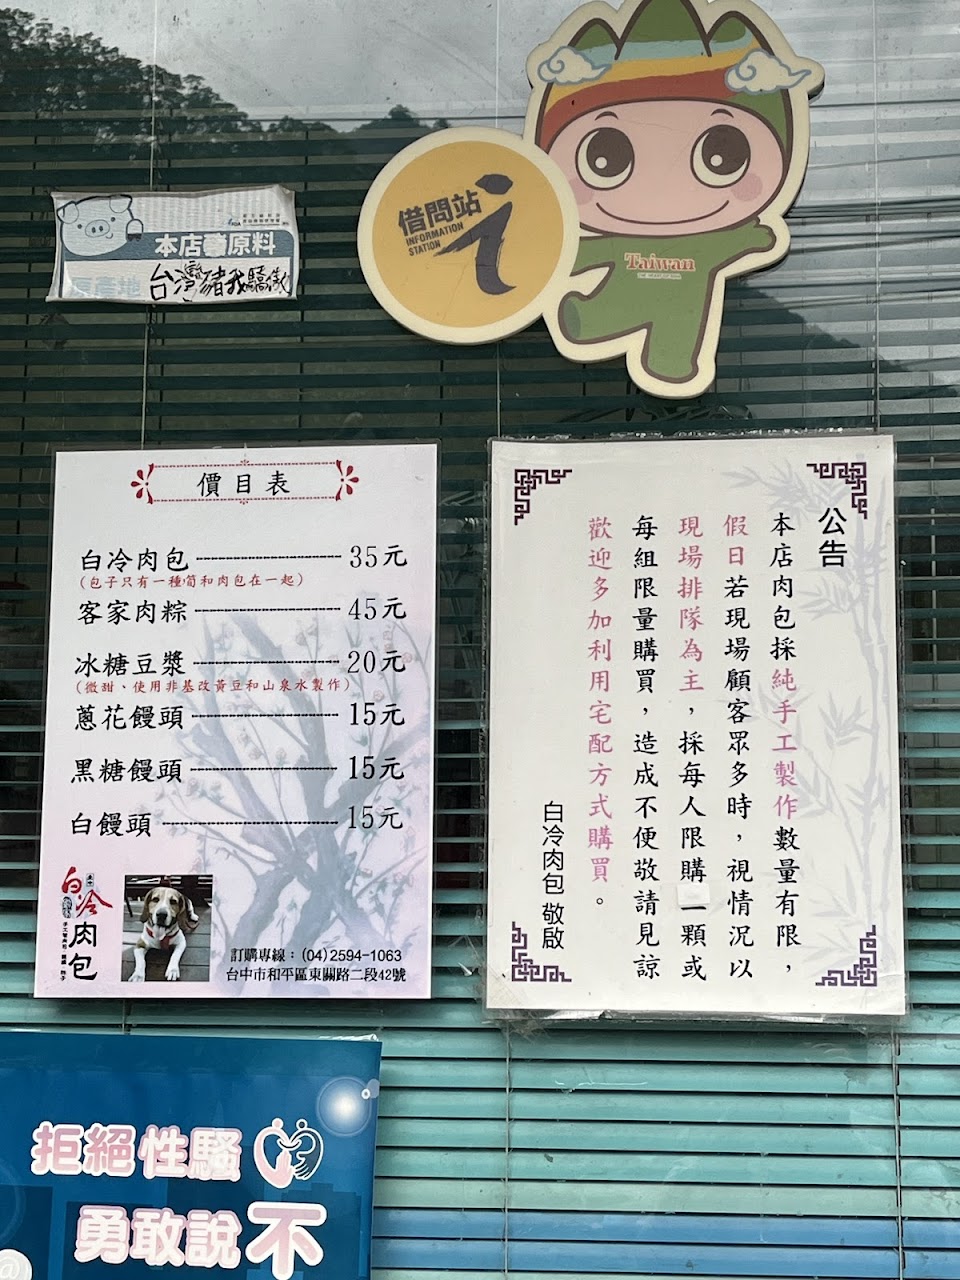 借問站
INFORMATION
STATION
i
Taiwan
本店豬原料
台灣豬我驕傲
價目表
白冷肉包 35元
(包子只有一種筍和肉包在一起)
客家肉粽 45元
冰糖豆漿 20元
(微甜、使用非基改黃豆和山泉水製作)
蔥花饅頭 15元
黑糖饅頭 15元
白饅頭 15元
白冷
肉包
訂購專線：(04)2594-1063
台中市和平區東關路二段42號
公告
本店肉包採純手工製作數量有限，
假日若現場顧客眾多時，視情況以
現場排隊為主，採每人限購一顆或
每組限量購買，造成不便敬請見諒
歡迎多加利用宅配方式購買。
白冷肉包 敬啟
拒絕性騷
勇敢說不